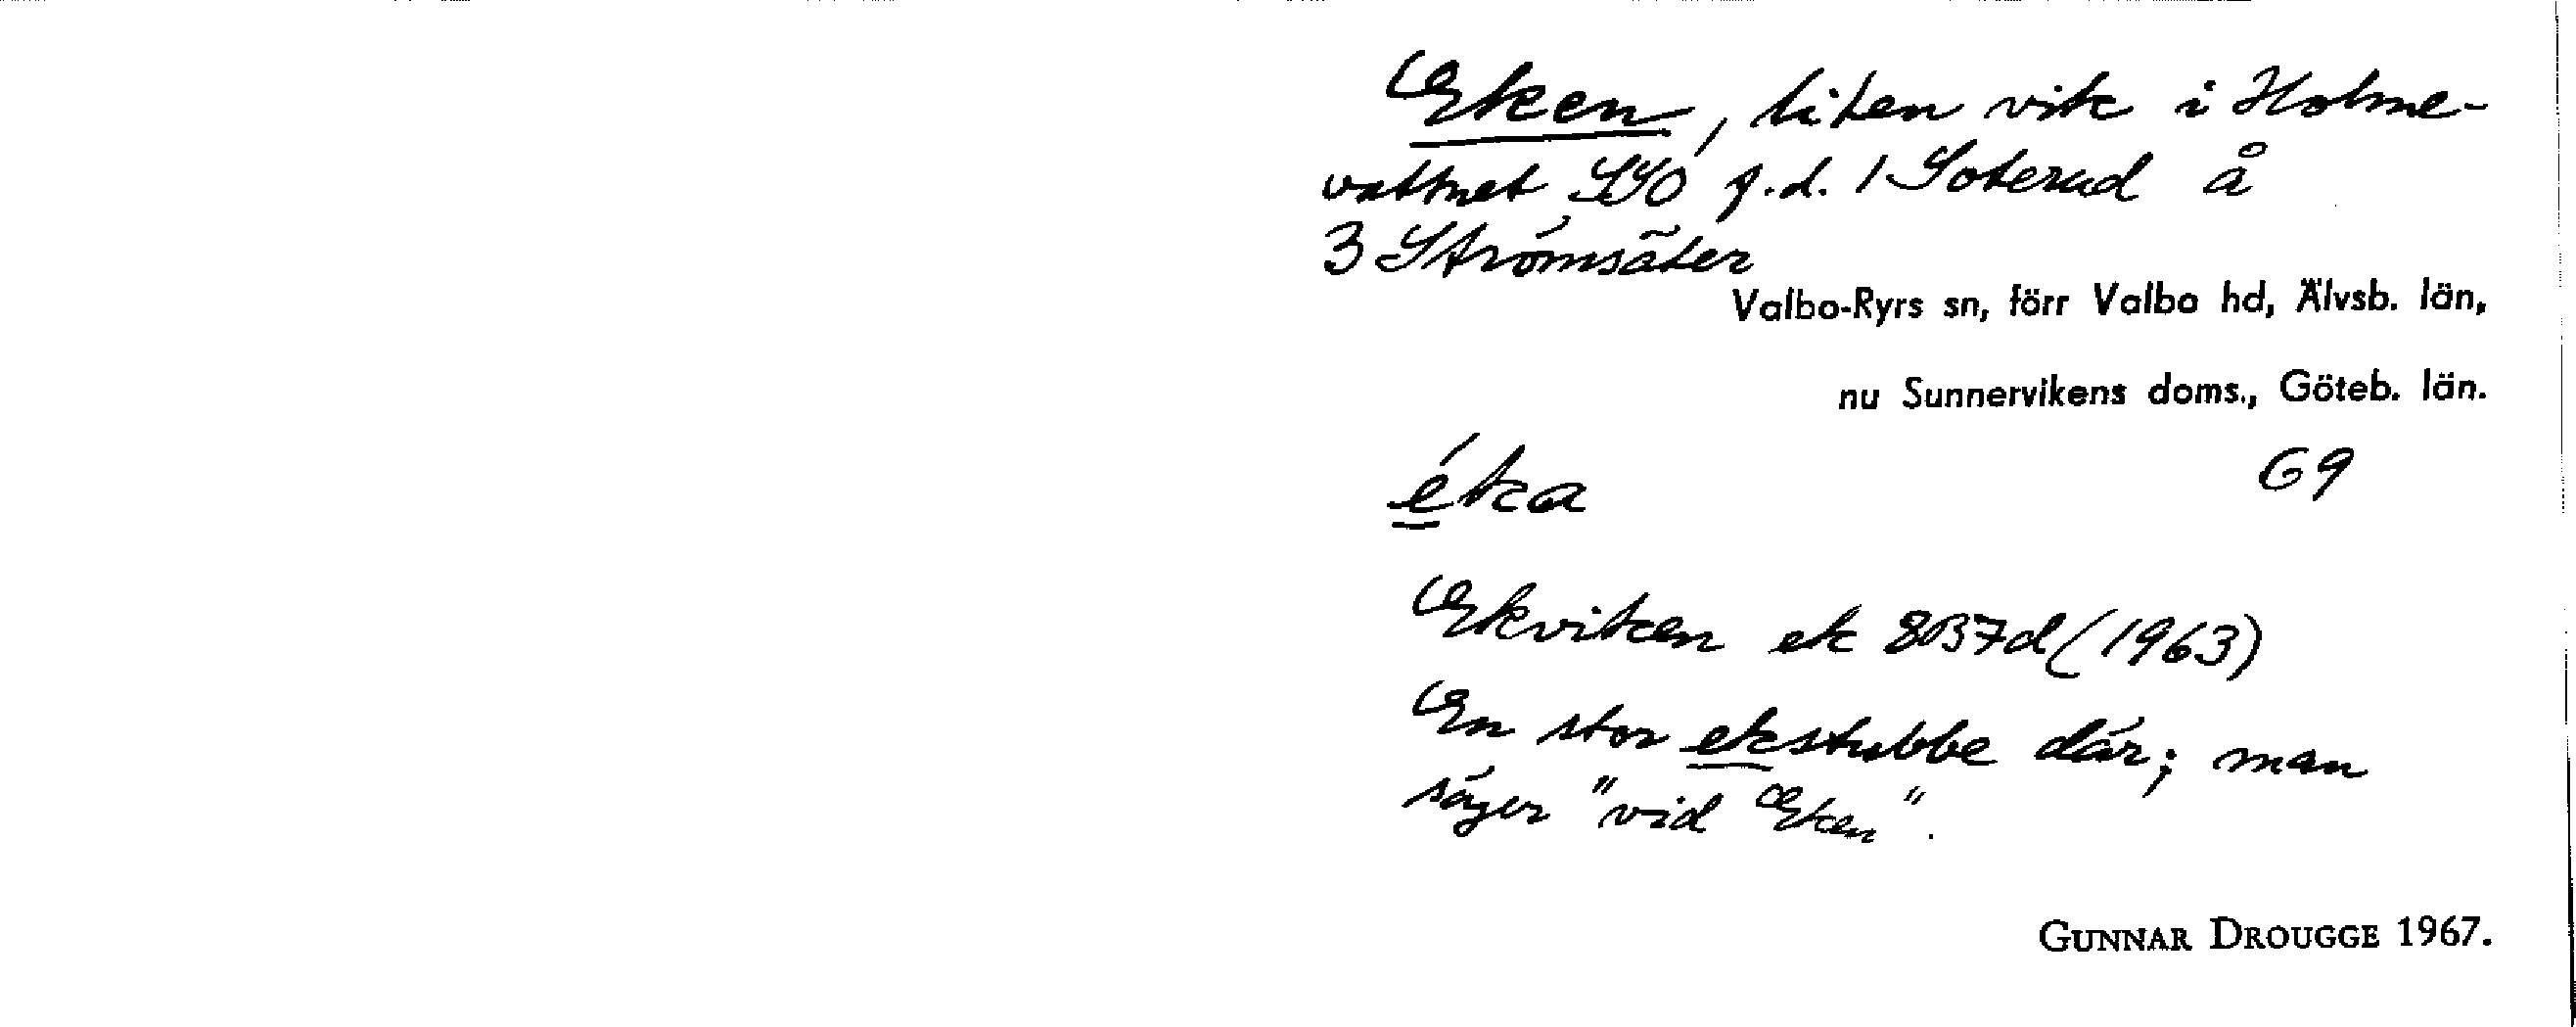 Eken, liten vik i Holme-
vattnet SSO g.d. 1 Soterud å
3 Strömsäter
Valbo-Ryrs sn, förr Valbo hd, Älvsb. län,
nu Sunnervikens doms., Göteb. län.
éka 69
Ekviken ek 8B7d (1963)
En stor ekstubbe där; man
säger "vid Eken".
GUNNAR DROUGGE 1967.